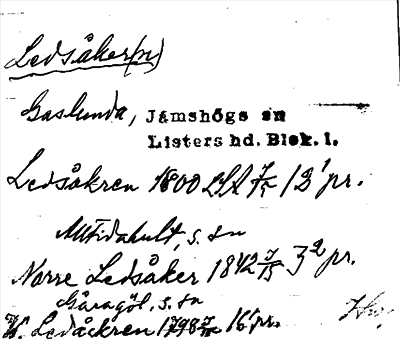 Ledsåker(n)
Gaslunda, Jämshögs sn
Listers hd. Blek. l.
Ledsåkren 1800 LSA 7/5 12' pr.
s. sn
Norre Ledsåker 1842 7/15 3² pr.
Gåragöl, s. sn
Ledåckren 1798 16' pr.